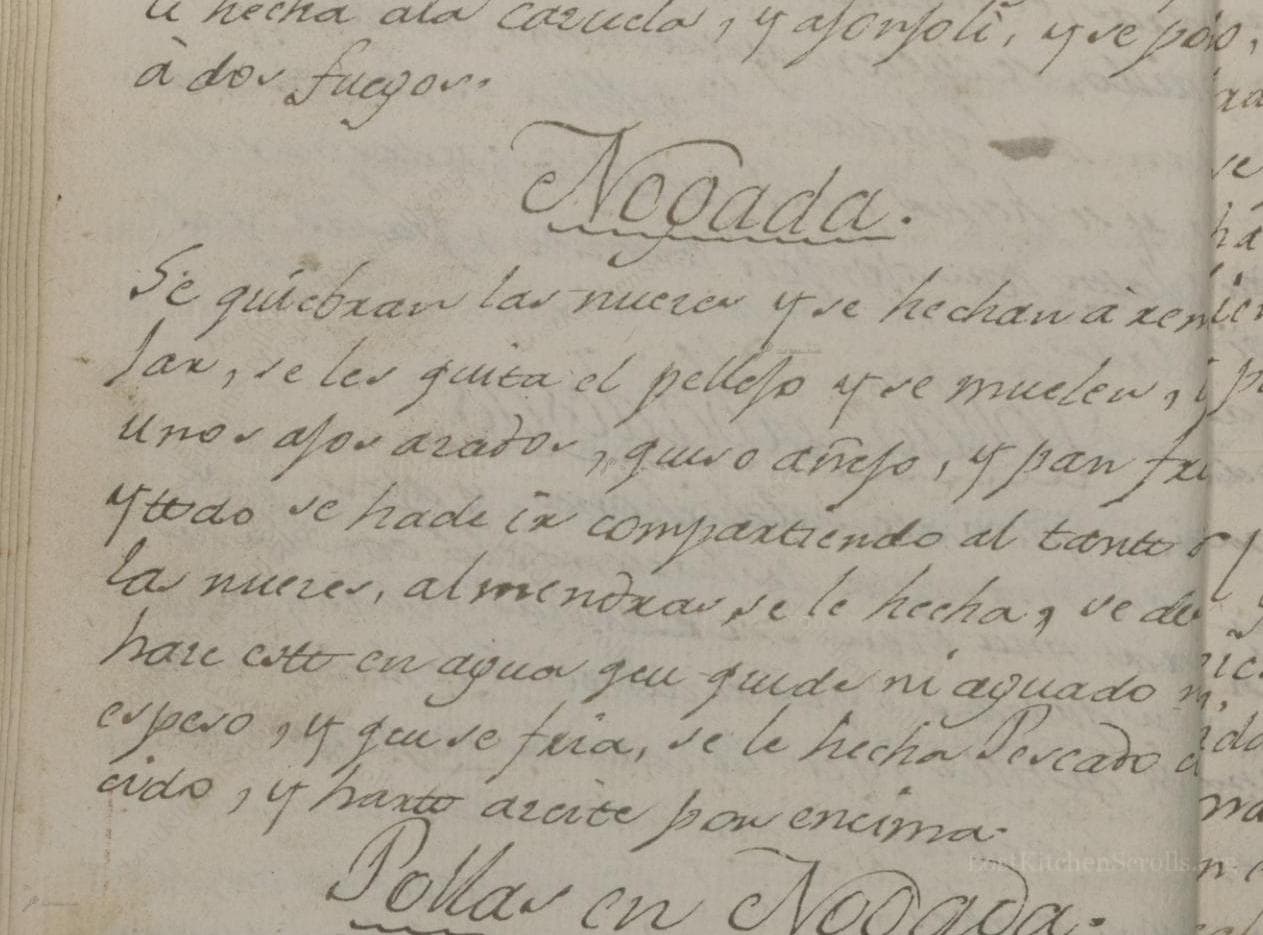 le hecha ala cazuela, y ajonjoli, y se pon,
à dos fuegos.
Nogada.
Se quiebran las nuezes y se hechan à remo
jar, se les quita el pellejo y se muelen, y
unos ajos azados, queso añejo, y pan fri
y ttodo se hade ir compartiendo al tantto d
las nuezes, almendras se le hecha, se des
haze estto en agua qeu quede ni aguado ni,
espeso, y qeu se fria, se le hecha Pescado co
cido, y hartto azeite por encima.
Pollas en Nogada.
LostKitchenScrolls.org